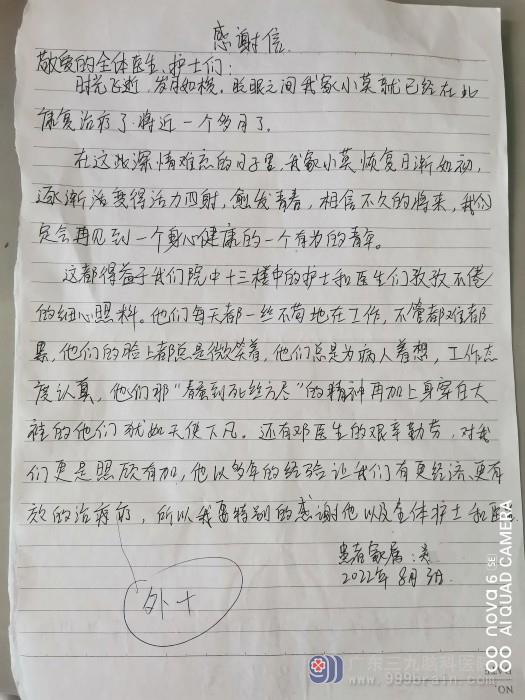 感谢信
敬爱的全体医生、护士们:
时光飞逝,岁月如梭,眨眼之间我家小莫就已经在此
康复治疗了将近一个多月了。
在这此深情难忘的日子里,我家小莫恢复日渐如初,
逐渐活变得活力四射,愈发青春,相信不久的将来,我们
定会再见到一个身心健康的一个有为的青年。
这都得益于我们院中十三楼中的护士和医生们孜孜不倦
的细心照料。他们每天都一丝不苟地在工作,不管都难都
累,他们的脸上都总是微笑着,他们总是为病人着想,工作态
度认真,他们那“春蚕到死丝方尽”的精神再加上身穿白大
褂的他们犹如天使下凡。还有邓医生的艰辛勤劳,对我
们更是照顾有加,他以多年的经验让我们有更经济、更有
效的治疗,所以我要特别的感谢他以及全体护士和
患者家属:吴
2022年8月3日.
外十
nova 6 SE
AI QUAD CAMERA
广东三九脑科医院
www.999brain.com
DATE
NO.